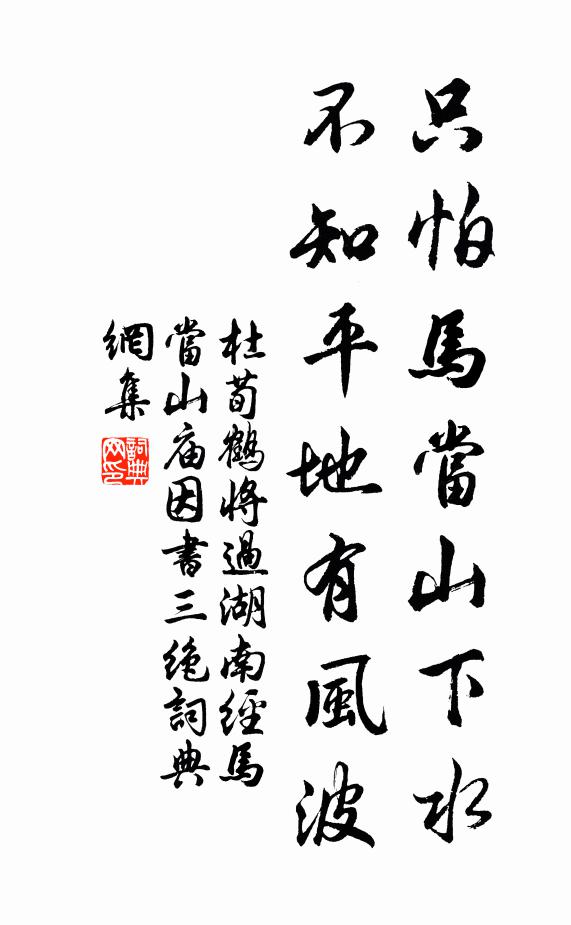 只怕馬當山下水
不知平地有風波
杜荀鶴將過湖南經馬
當山庙因書三絶詞典
網集
詞典
网印